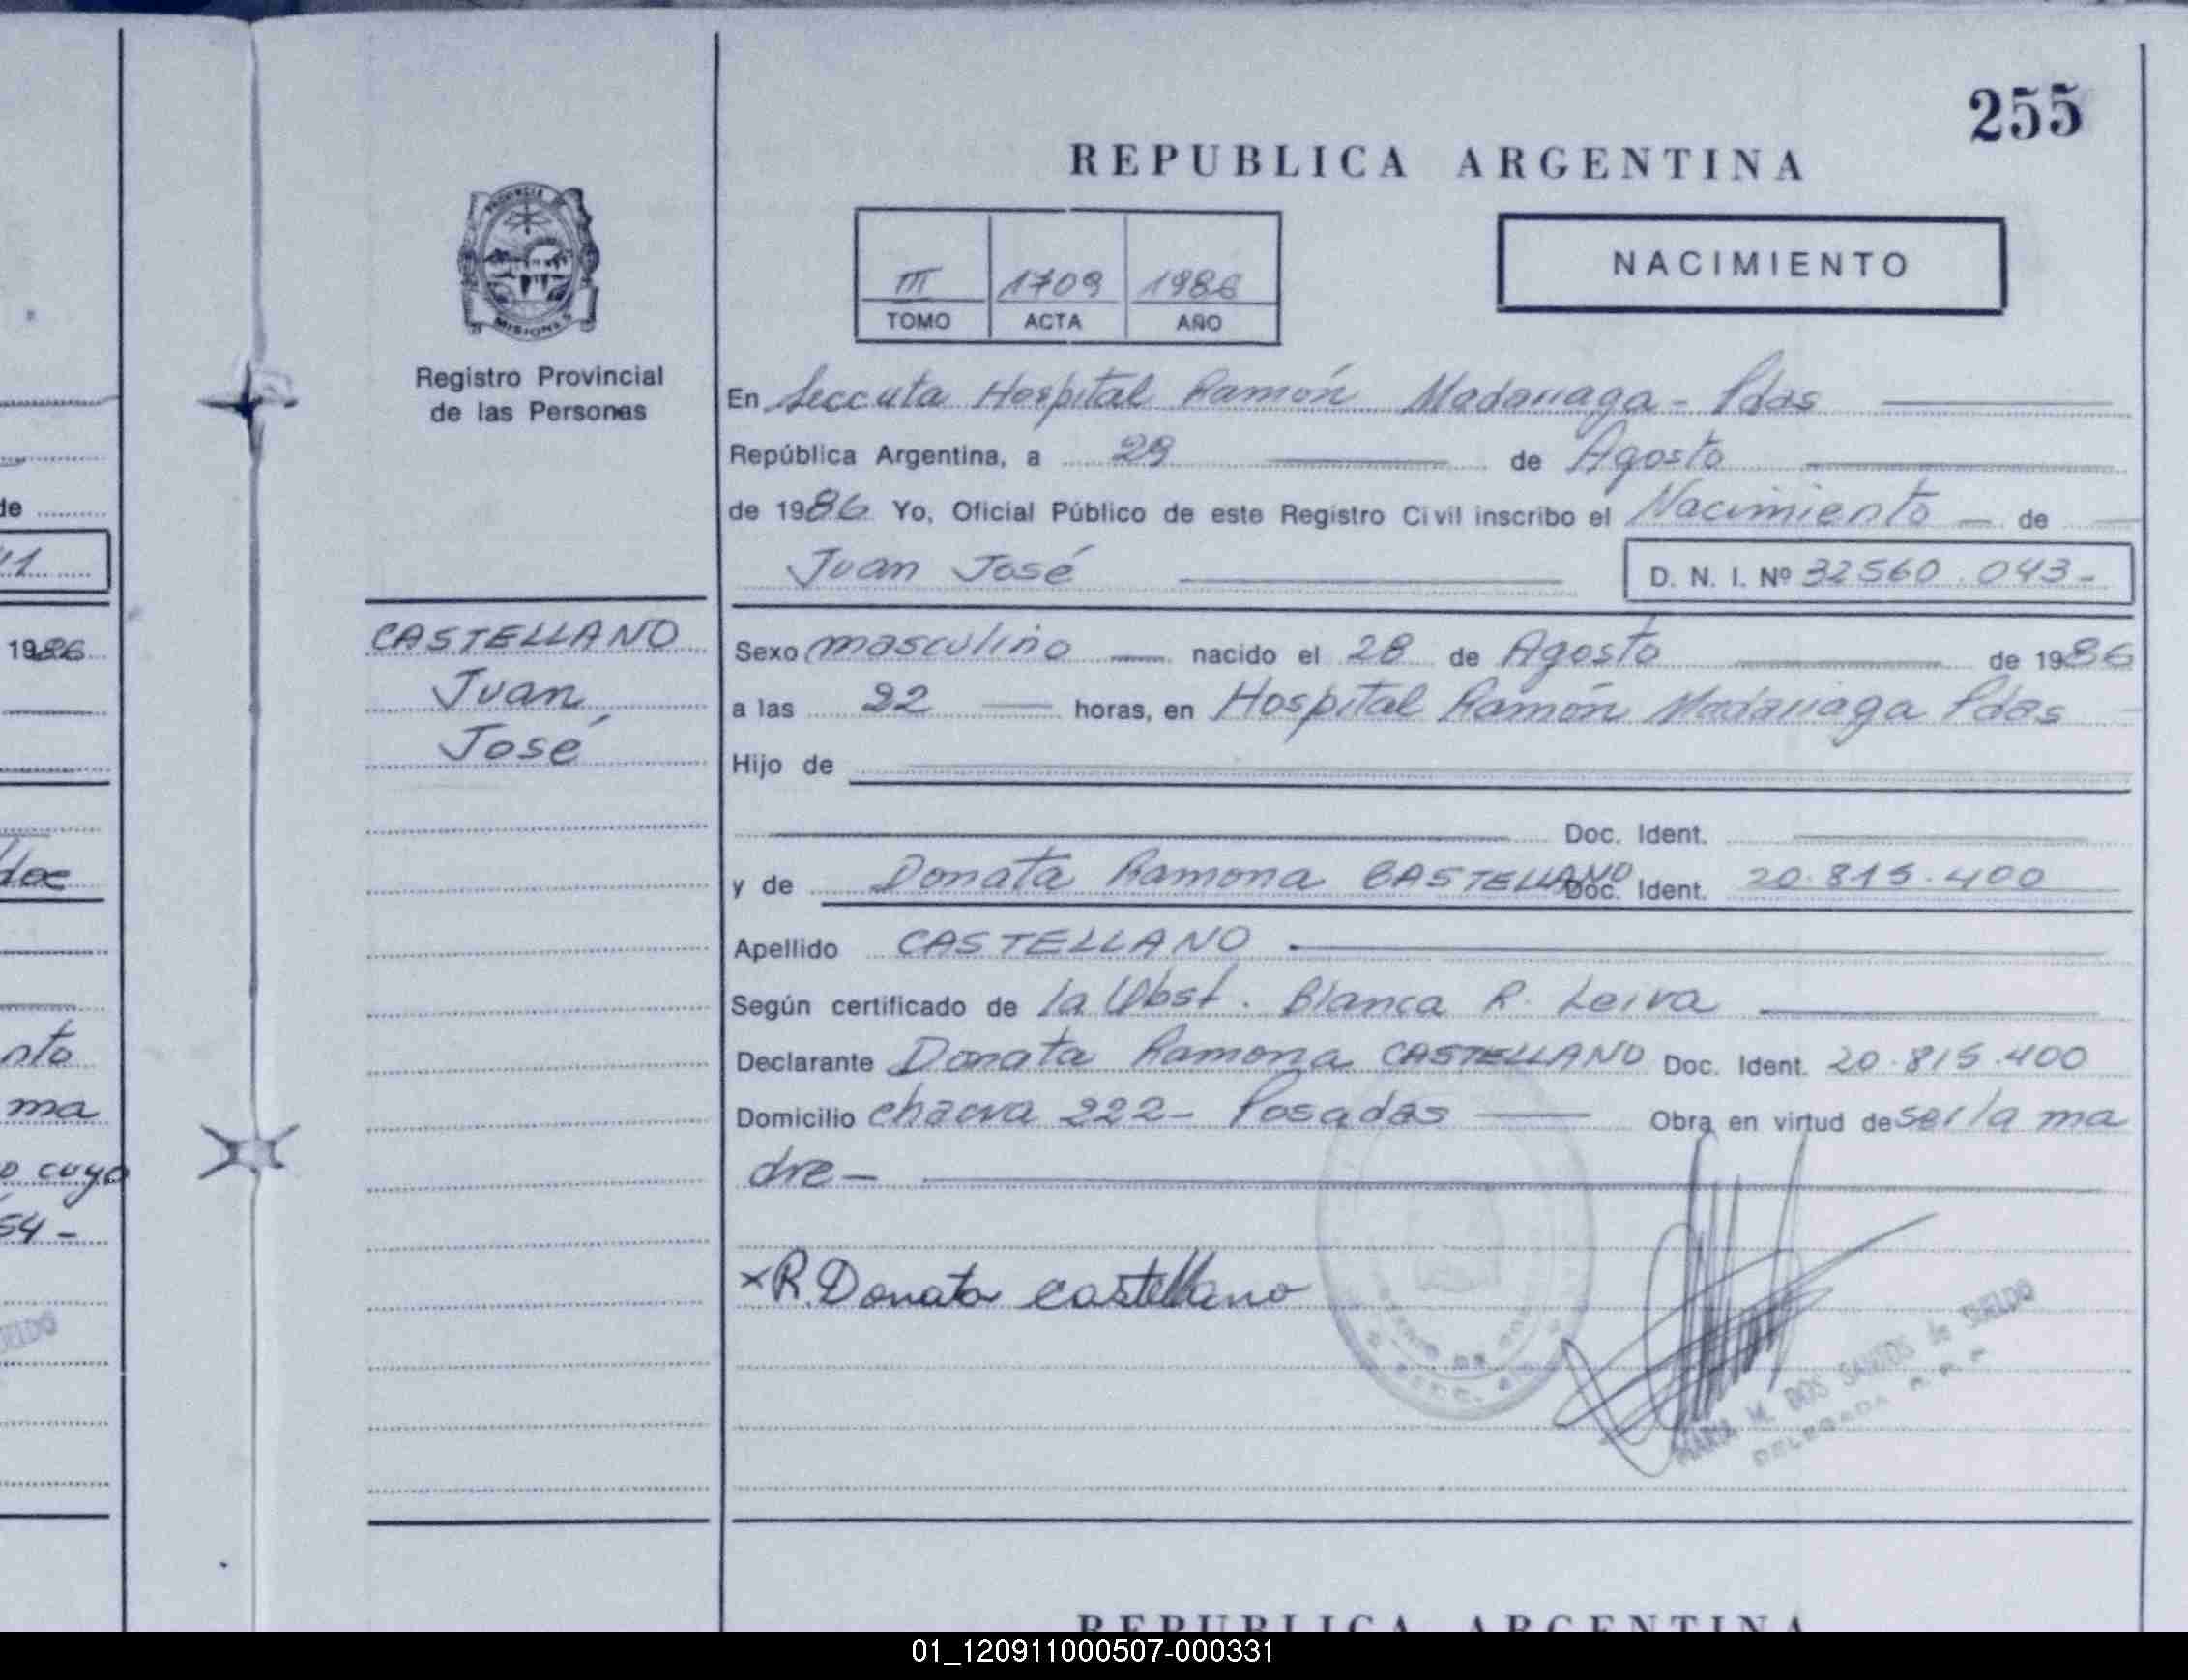 255
REPUBLICA ARGENTINA
PROVINCIA DE
MISIONES
Registro Provincial
de las Personas
III 1709 1986
TOMO ACTA AÑO
NACIMIENTO
En Hospital Ramón Madariaga - Pdas
República Argentina, a 29 de Agosto
de 1986 Yo, Oficial Público de este Registro Civil inscribo el Nacimiento de
Juan José D. N. I. Nº 32560.043-
CASTELLANO
Juan
José
Sexo masculino nacido el 28 de Agosto de 1986
a las 22 horas, en Hospital Ramón Madariaga Pdas
Hijo de
Doc. Ident.
y de Donata Ramona CASTELLANO Doc. Ident. 20.815.400
Apellido CASTELLANO
Según certificado de la Obst. Blanca R. Leiva
Declarante Donata Ramona CASTELLANO Doc. Ident. 20.815.400
Domicilio chacra 222- Posadas Obra en virtud de ser la ma
dre-
xR. Donata castellano
MARIA M. DOS SANTOS de SUELDO
DELEGADA R. P. P.
de
11
1986
nto
ma
o cuyo
54 -
REPUBLICA ARGENTINA
01_120911000507-000331